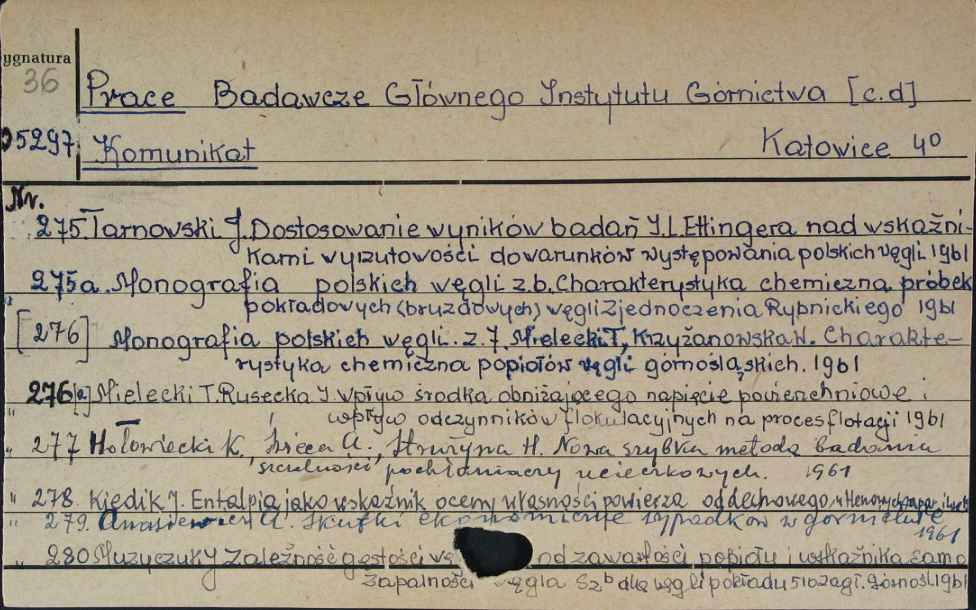 ygnatura
36
Prace Badawcze Głównego Instytutu Górnictwa [c.d]
05297 Komunikat Katowice 4º
Nr.
275. Tarnowski J. Dostosowanie wyników badań I.L. Ettingera nad wskaźni-
kami wyrzutowości do warunków występowania polskich węgli 1961
" 275a. Monografia polskich węgli z.b. Charakterystyka chemiczna próbek
pokładowych (bruzdowych) węgli Zjednoczenia Rybnickiego 1961
[276] Monografia polskich węgli. z. 7. Mielecki T, Krzyżanowska W. Charakte-
rystyka chemiczna popiołów węgli górnośląskich. 1961
" 276[a] Mielecki T. Rusecka J wpływ środka obniżającego napięcie powierzchniowe i
wpływ odczynników flokulacyjnych na proces flotacji 1961
" 277 Hołowiecki K., A., H. Nowa szybka metoda badania
szczelności pochłaniaczy ucieczkowych. 1961
" 278. Kiedik J. Entalpia jako wskaźnik oceny własności powietrza oddechowego w
" 279. A. Skutki ekonomiczne wypadków w górnictwie
1961
280 Muzyczuk J Zależność gęstości od zawartości popiołu i wskaźnika samo
zapalności węgla Szb dla węgli pokładu 510 zagł. Górnośl. 1961